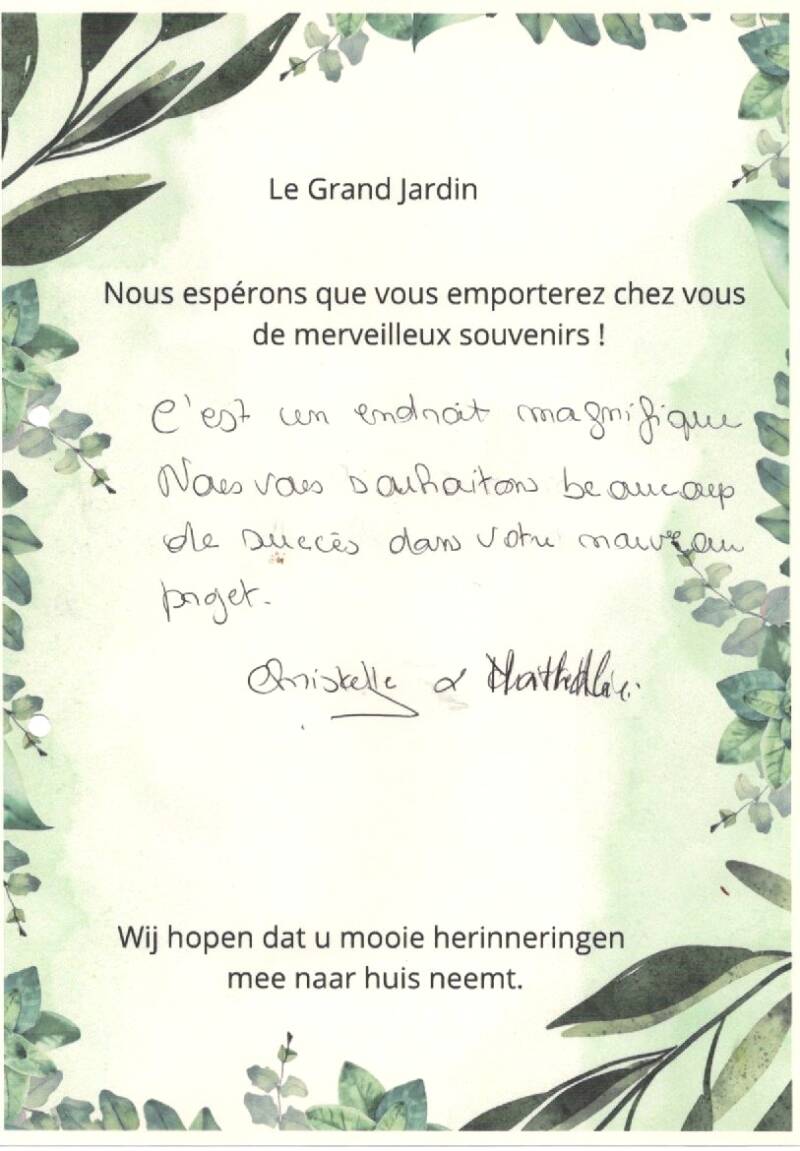 Le Grand Jardin
Nous espérons que vous emporterez chez vous
de merveilleux souvenirs !
C'est un endroit magnifique
Nous vous souhaitons beaucoup
de succès dans votre nouveau
projet.
&
Wij hopen dat u mooie herinneringen
mee naar huis neemt.